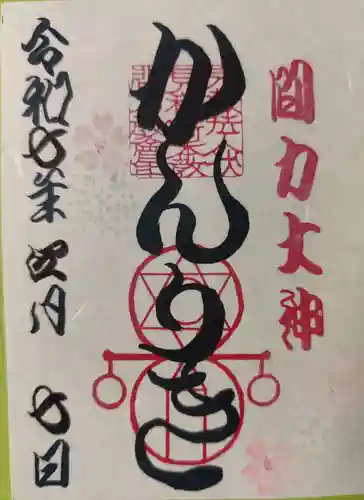 間力大神
かんりき
令和七年 四月 七日